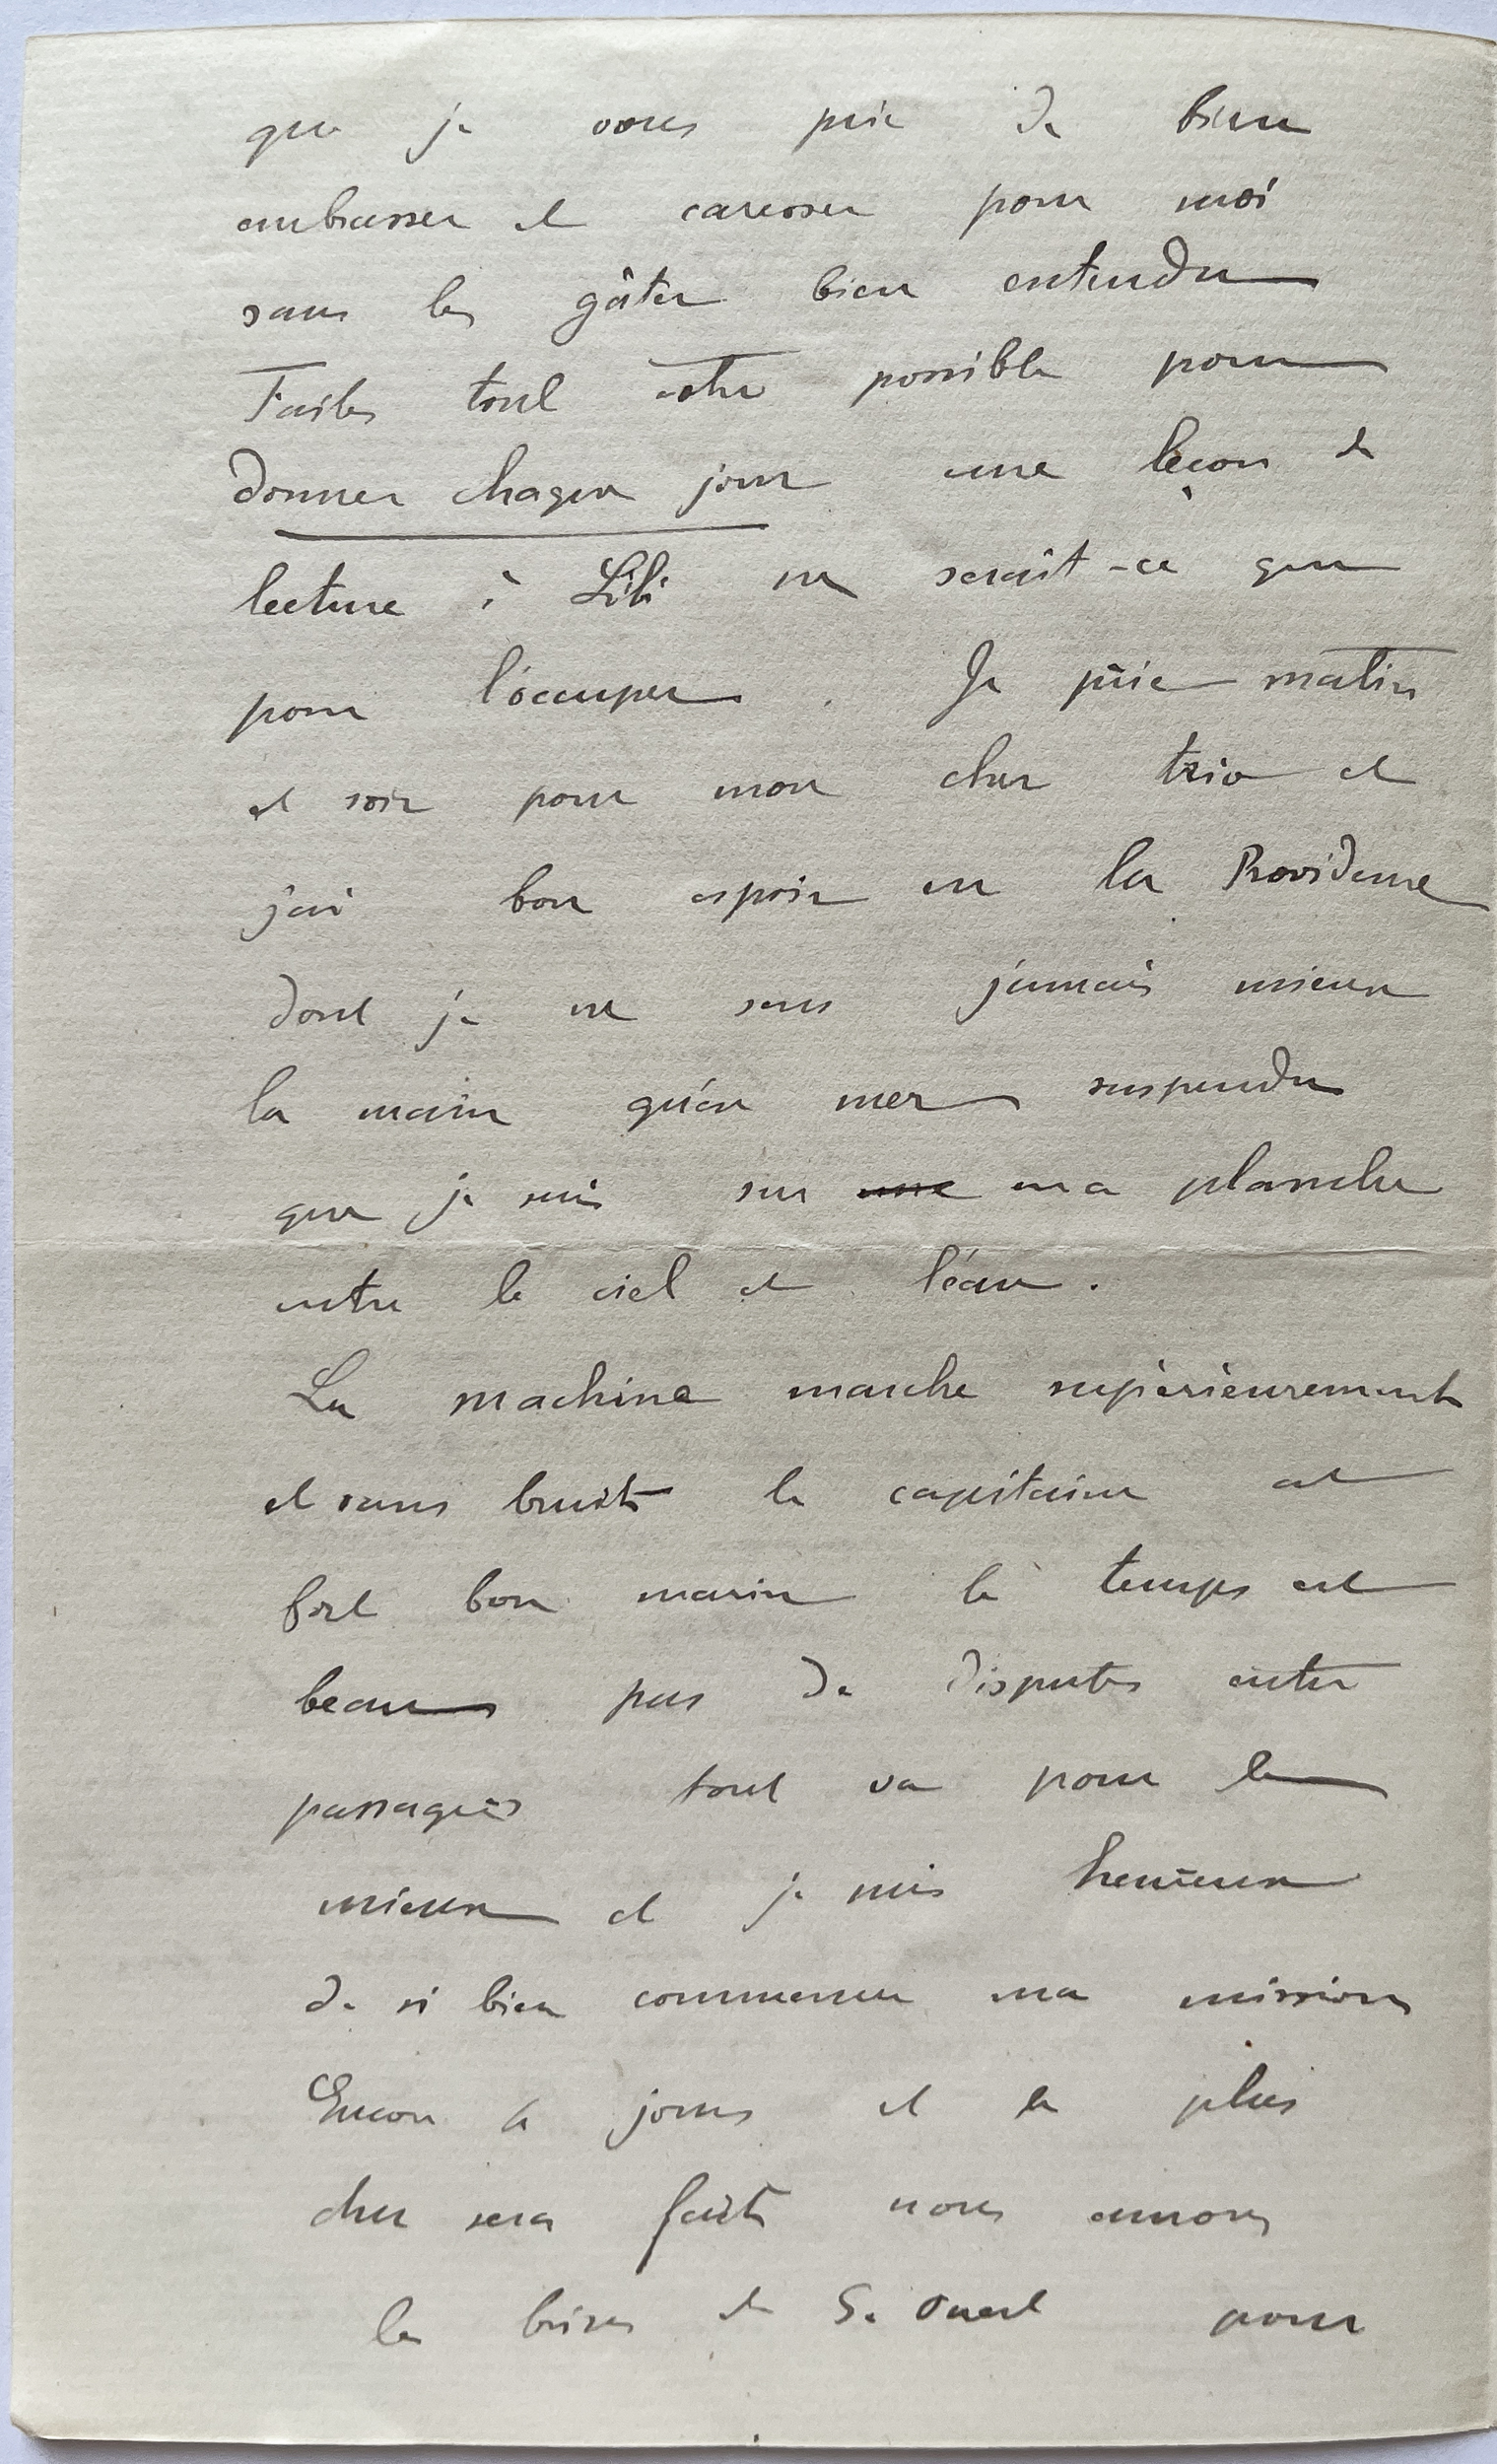 que je vous prie de bien
embrasser et caresser pour moi
sans les gâter bien entendu
Faites tout votre possible pour
donner chaque jour une leçon de
lecture à Lili ne serait-ce que
pour l'occuper. Je prie matin
et soir pour mon cher trio et
j'ai bon espoir en la Providence
dont je ne sens jamais mieux
la main qu'en mer suspendu
que je suis sur une ma planche
entre le ciel et l'eau.
La machine marche supérieurement
et sans bruit le capitaine est
fort bon marin le temps est
beau pas de disputes entre
passagers tout va pour le
mieux et je suis heureux
de si bien commencer ma mission
Encore jours et le plus
cher sera fait nous aurons
les brises de S. Ouest pour